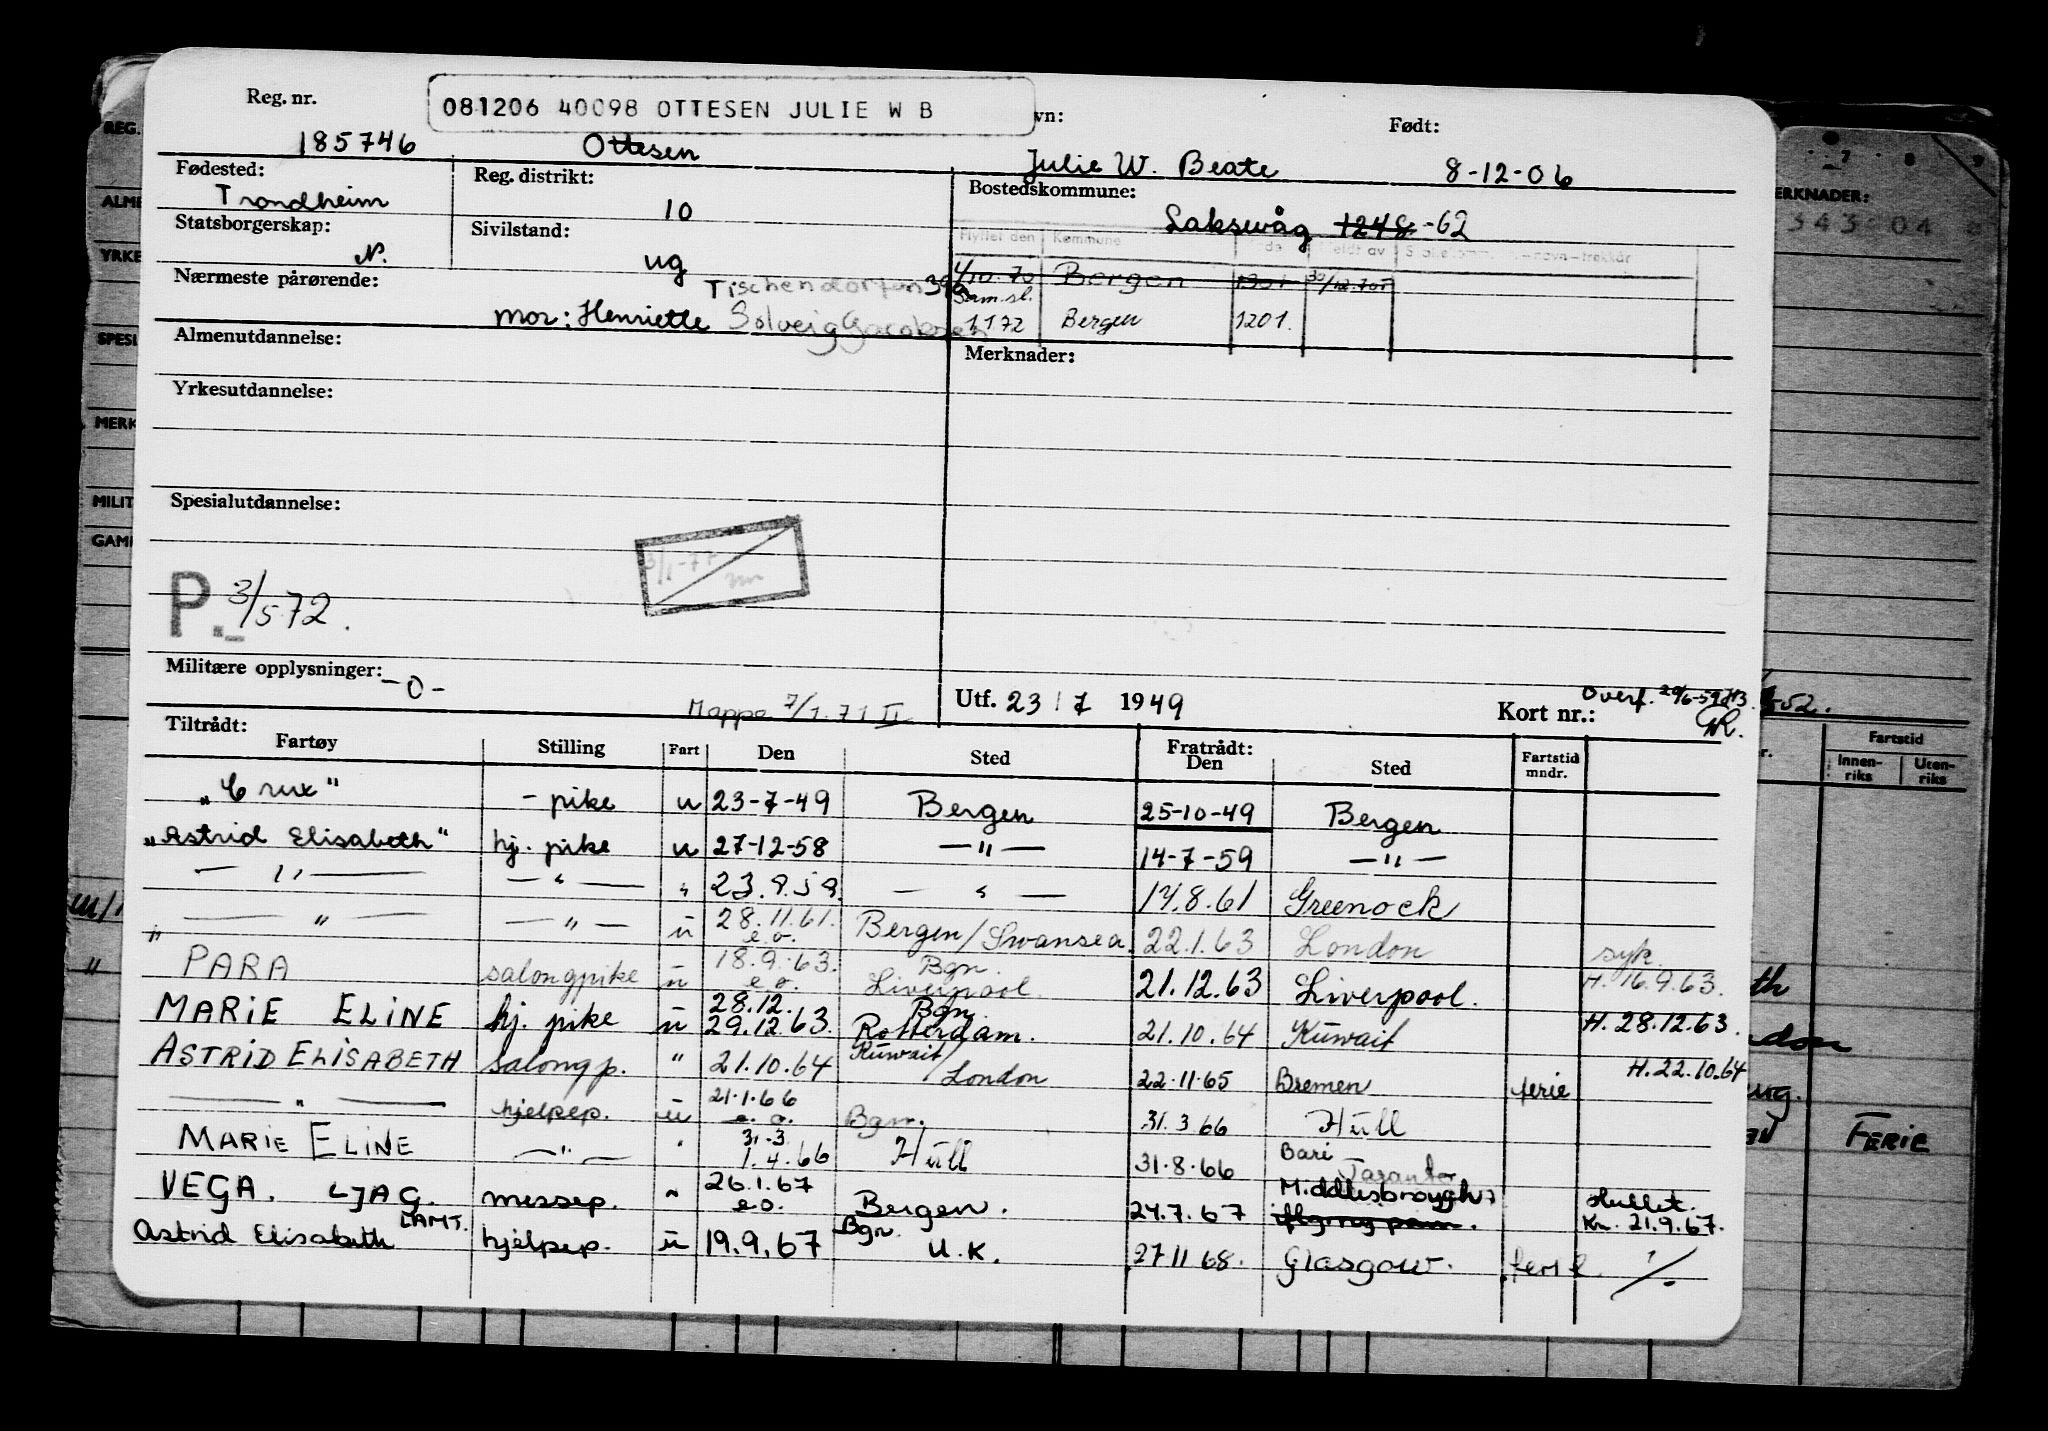 Reg. nr. 081206 40098 OTTESEN JULIE W B vn: Født:
185746 Ottesen Julie W. Beate 8-12-06
Fødested: Reg. distrikt: Bostedskommune:
Trondheim 10 Laksevåg 1248 -62
Statsborgerskap: Sivilstand: Flyttet den Kommune
N. ug 1/10.70 Bergen 1301
Nærmeste pårørende: Tischendorfan 39a Sam.sl.
mor: Henriette Solveig Jacobsen 1 1 72 Bergen 1201.
Almenutdannelse: Merknader:
Yrkesutdannelse:
Spesialutdannelse:
3/1-77
P. 3/5.72.
Militære opplysninger: -0-
Mappe 7/1.71 II Utf. 23/7 1949 Kort nr.: Overf.
Tiltrådt: Fratrådt:
Fartøy Stilling Fart Den Sted Den Sted Fartstid mndr.
"Crux" - pike u 23-7-49 Bergen 25-10-49 Bergen
"Astrid Elisabeth" hj. pike u 27-12-58 —"— 14-7-59 —"—
—"— —"— " —"— 17.8.61 Greenock
—"— —"— ü 28.11.61. e.o. Bergen/Swansea 22.1.63 London syk.
PARA salongpike ü 18.9.63. e.o. Bgn. Liverpool 21.12.63 Liverpool. H. 16.9.63.
MARIE ELINE hj. pike ü 28.12. 29.12.63. Bgn. Rotterdam. 21.10.64 Kuwait H. 28.12.63.
ASTRID ELISABETH salongp. " 21.10.64 Kuwait/London 22.11.65 Bremen ferie H. 22.10.64
—"— hjelpep. ü 21.1.66 e.o. Bgn. 31.3.66 Hull
MARIE ELINE —"— " 31.3 1.4.66 Hull 31.8.66 Bari Taranto
VEGA. LJAG. messep. " 26.1.67 e.o. Bergen. 24.7.67 Middlesbrough
Kr. 21.9.67.
Astrid Elisabeth LAMT. hjelpep. ü 19.9.67 Bgn. U.K. 27 11 68. Glasgow.
REG.
YRKE
MILIT
Fartstid
Innen-riks Uten-riks
FERIE